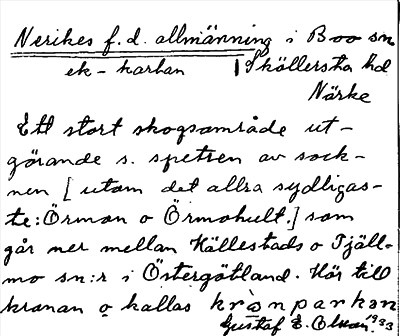 Nerikes f. d. allmänning i Boo sn
ek-kartan Sköllersta hd
Närke
Ett stort skogsområde ut-
görande s. spetsen av sock-
nen [utom det allra sydligas-
te: Örmon o Örmohult.] som
går ner mellan Hällestads o Tjäll-
mo sn:r i Östergötland. Hör till
kronan o kallas krònparkən
Gustaf E. Olsson. 1933